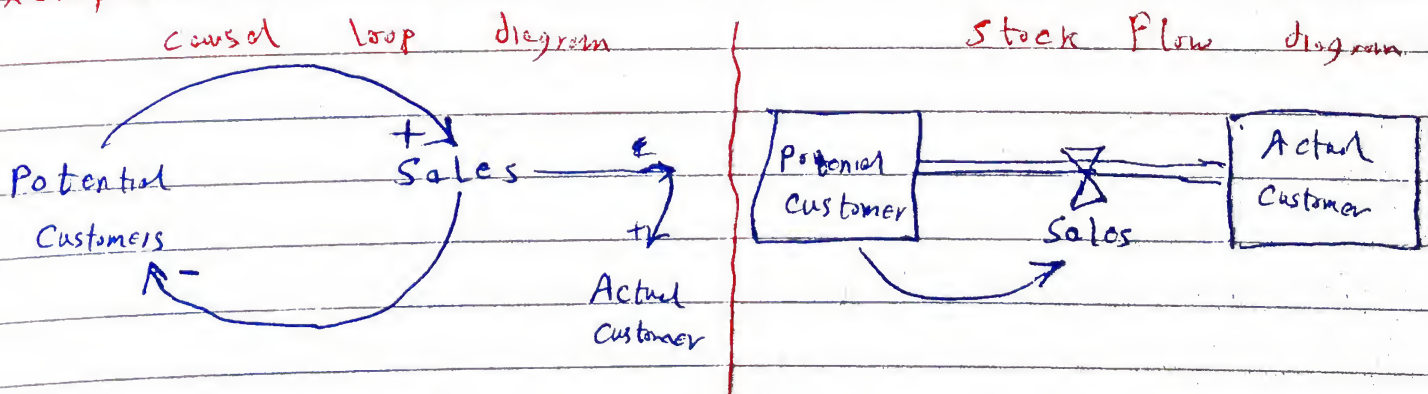 causal loop diagram
Potential
Customers
+
Sales
-
+
Actual
Customer
Stock Flow diagram
Potenial
Customer
Sales
Actual
Customer